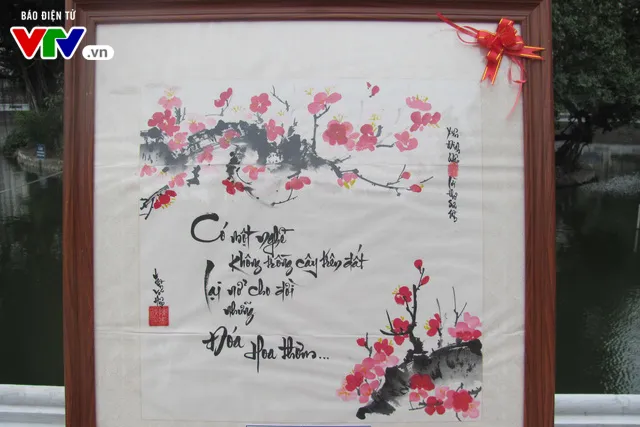 BÁO ĐIỆN TỬ
VTV.vn
Có một nghề
Không trồng cây trên đất
Lại nở cho đời
những
Đóa Hoa thơm...